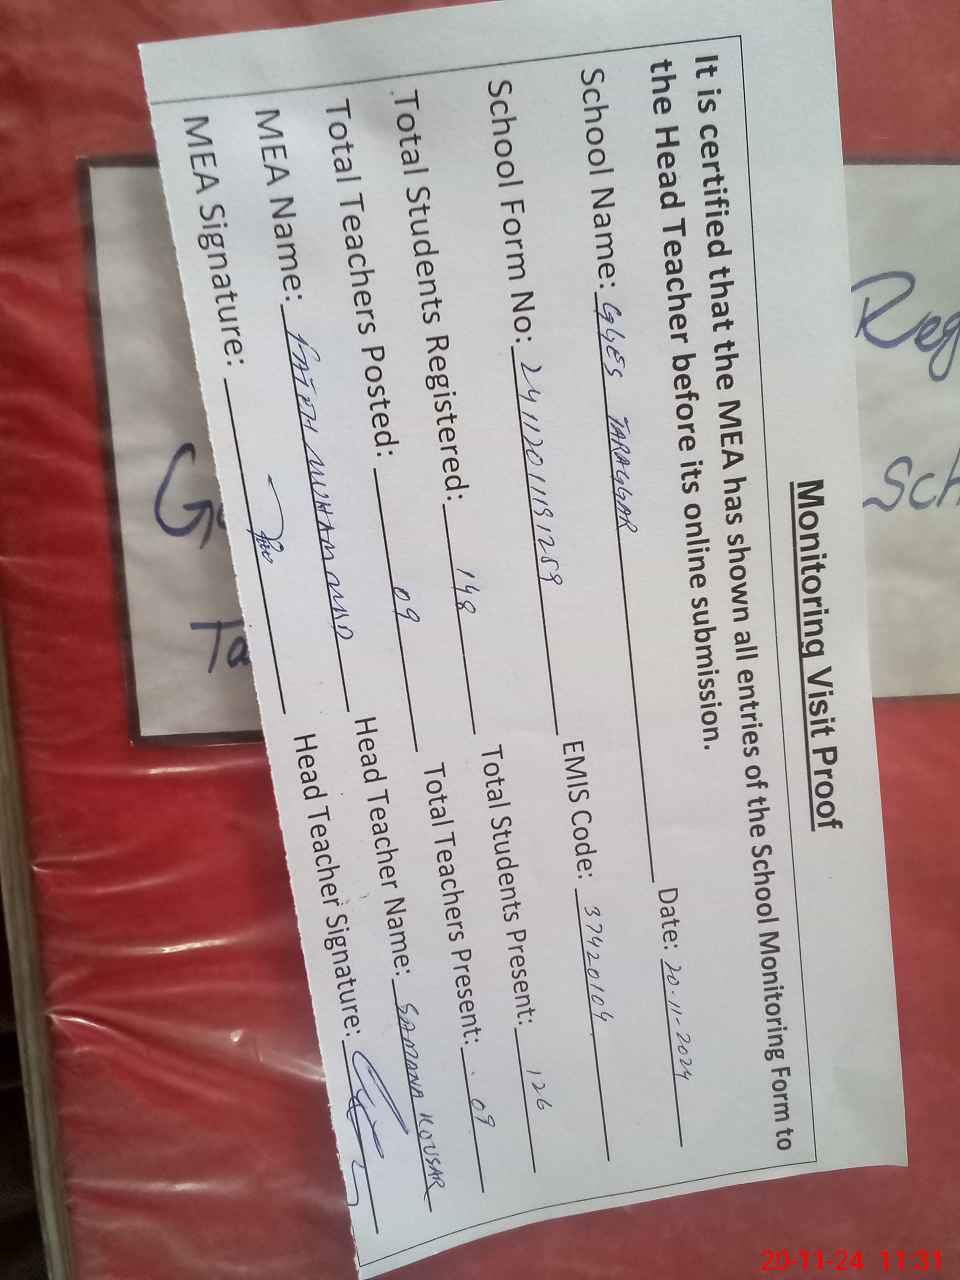 Monitoring Visit Proof
It is certified that the MEA has shown all entries of the School Monitoring Form to
the Head Teacher before its online submission.
School Name: GGES TARAGGAR Date: 20-11-2024
School Form No: 2411201191259 EMIS Code: 37420104
Total Students Registered: 148 Total Students Present: 126
Total Teachers Posted: 09 Total Teachers Present: 09
MEA Name: FATEH MUHAMMAD Head Teacher Name: SAMANA KOUSAR
MEA Signature: Head Teacher Signature:
Reg
Sch
G
Ta
20-11-24 11:31